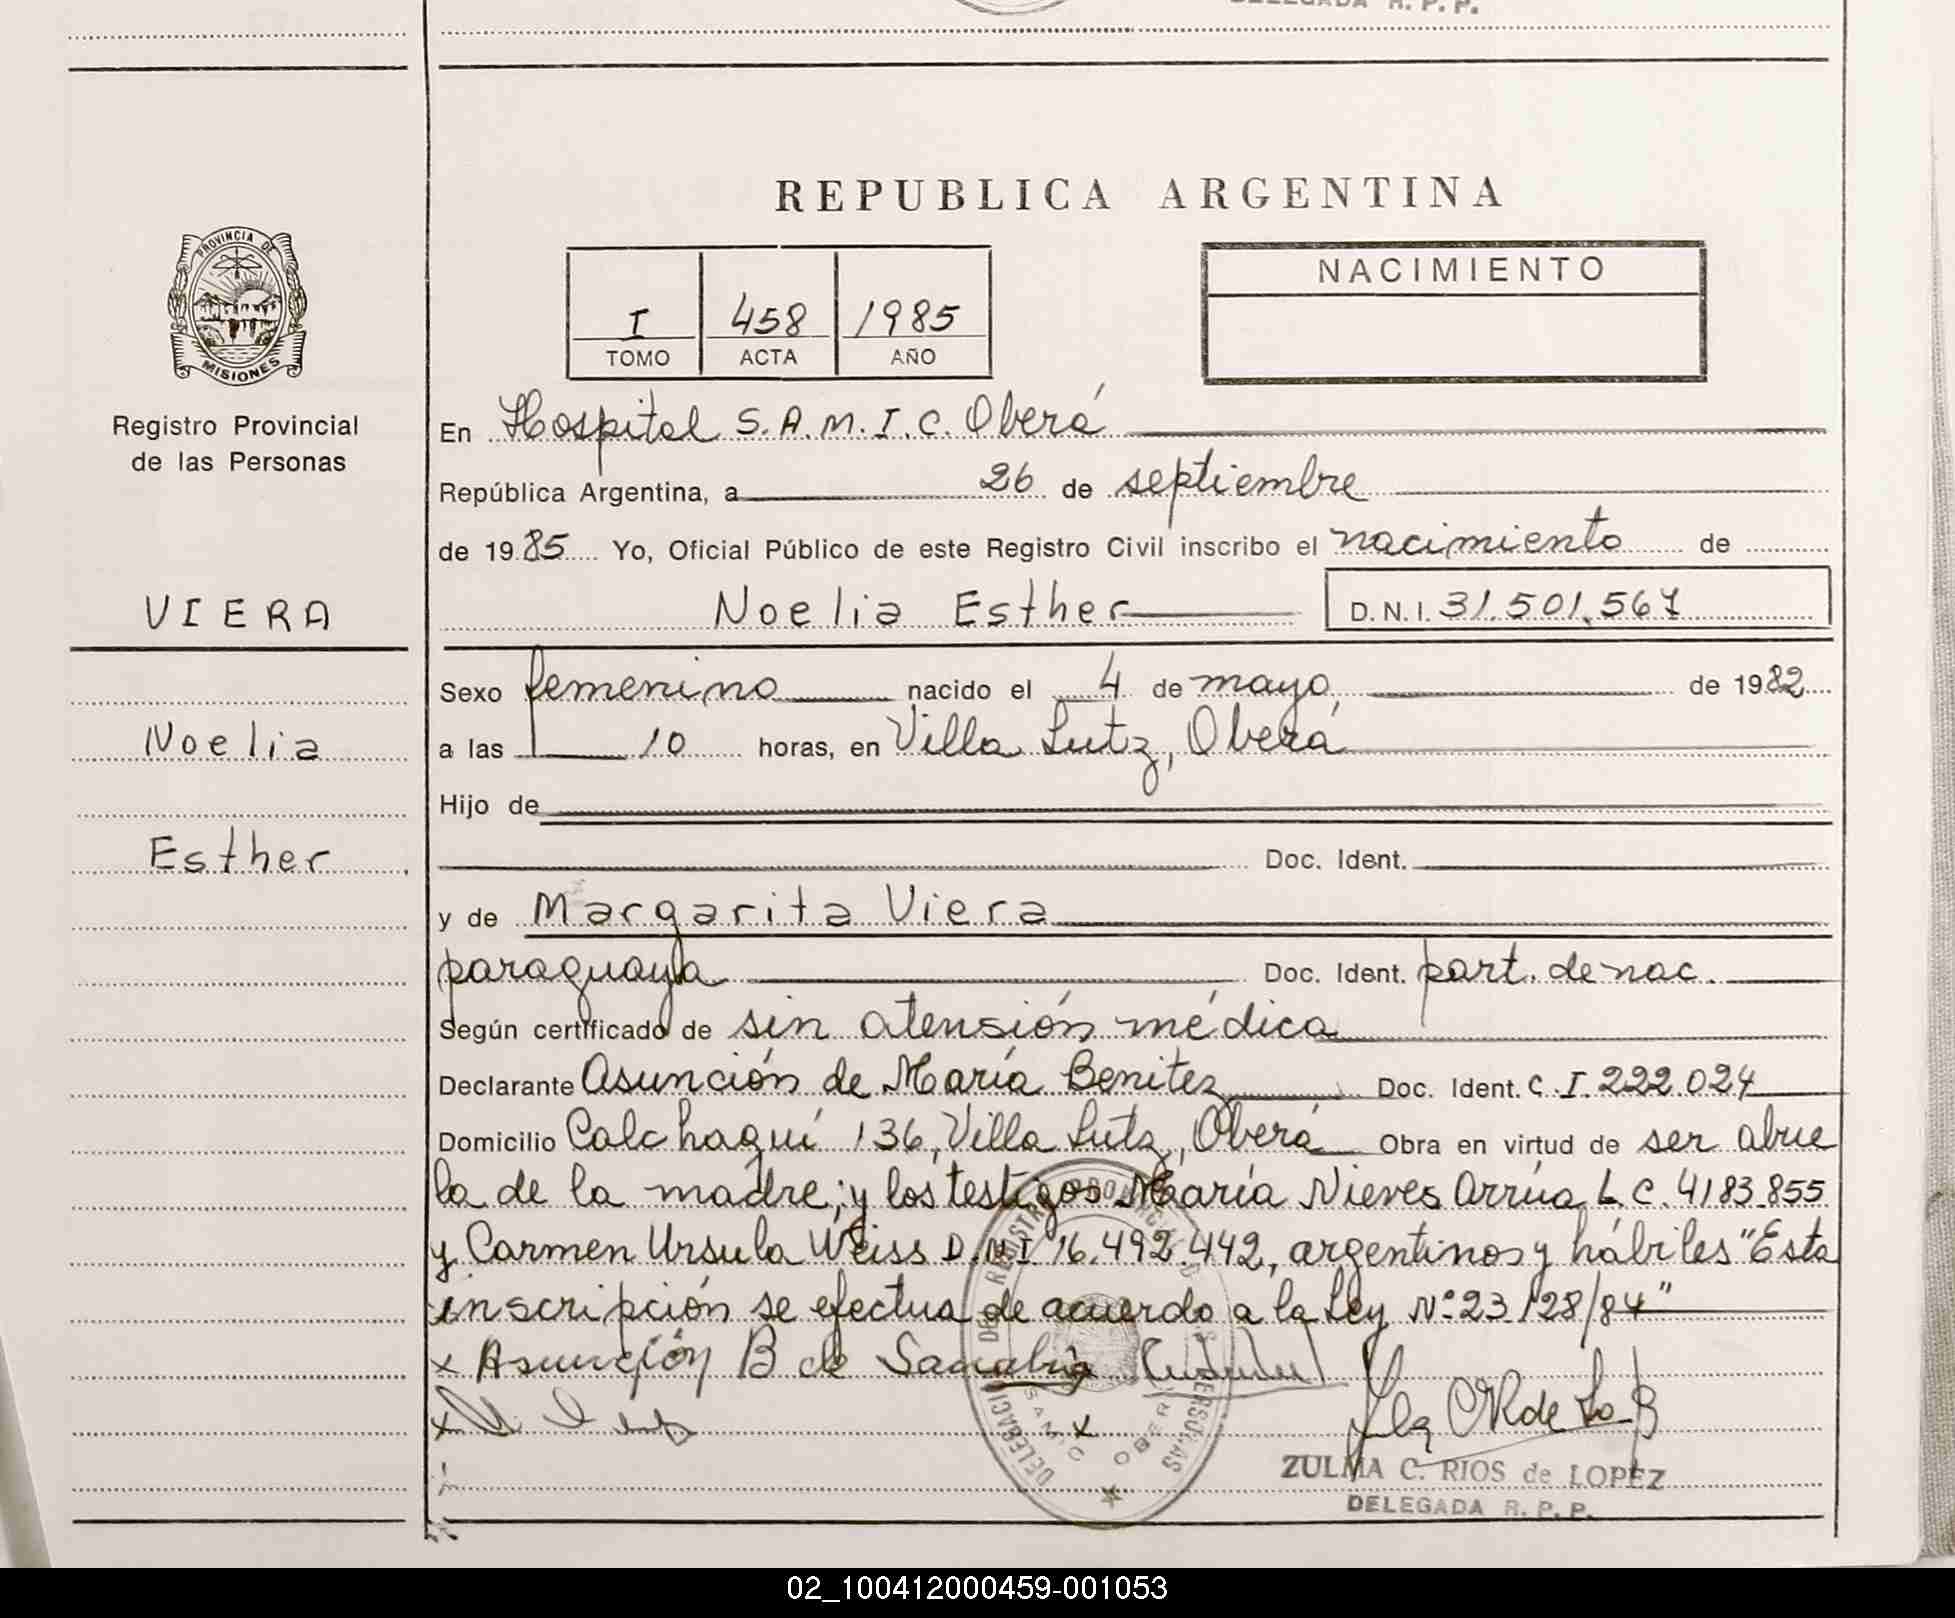 DELEGADA R. P. P.
REPUBLICA ARGENTINA
PROVINCIA DE
MISIONES
NACIMIENTO
I 458 1985
TOMO ACTA AÑO
Registro Provincial
de las Personas
En Hospital S.A.M.I.C. Oberá
República Argentina, a 26 de septiembre
de 1985 Yo, Oficial Público de este Registro Civil inscribo el nacimiento de
VIERA
Noelia Esther D.N.I. 31.501.567
Sexo femenino nacido el 4 de mayo de 1982
Noelia
a las 10 horas, en Villa Lutz, Oberá
Hijo de
Esther
Doc. Ident.
y de Margarita Viera
paraguaya Doc. Ident. part. de nac.
Según certificado de sin atensión médica
Declarante Asunción de María Benitez Doc. Ident. C.I. 222.024
Domicilio Calchaquí 136, Villa Lutz, Oberá Obra en virtud de ser abue
la de la madre; y los testigos María Nieves Arrúa L.C. 4183.855
y Carmen Ursula Weiss D.N.I 16.492.442, argentinos y hábiles "Esta
inscripción se efectua de acuerdo a la Ley Nº 23128/84"
x Asunción B de Sanabria
x
x
SAMIC OBERA
ZULMA C. RIOS de LOPEZ
DELEGADA R. P. P.
02_100412000459-001053